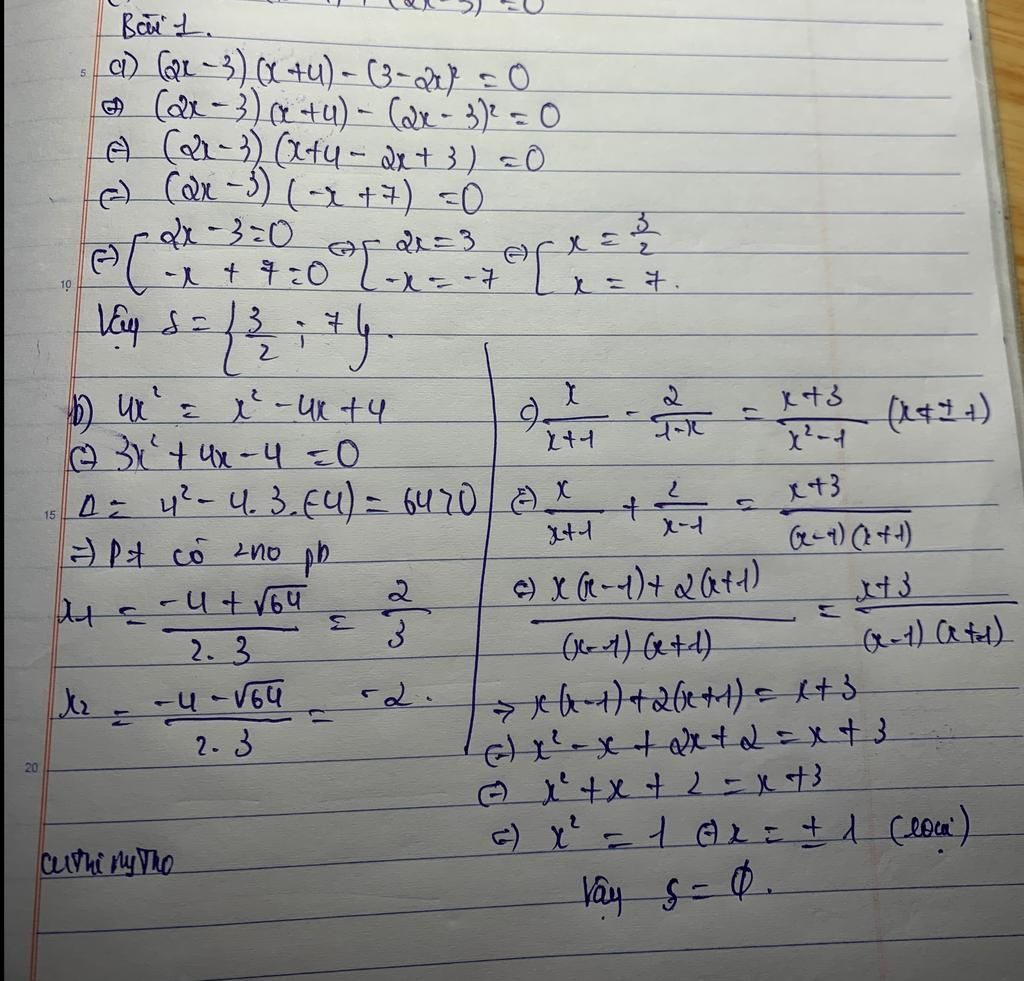 Bài 1.
a) (2x-3)(x+4) - (3-2x)² = 0
⇔ (2x-3)(x+4) - (2x-3)² = 0
⇔ (2x-3)(x+4-2x+3) = 0
⇔ (2x-3)(-x+7) = 0
⇔ [ 2x-3=0 ; -x+7=0 ⇔ [ 2x=3 ; -x=-7 ⇔ [ x = 3/2 ; x = 7.
Vậy S = {3/2 ; 7}.
b) 4x² = x² - 4x + 4
⇔ 3x² + 4x - 4 = 0
Δ = 4² - 4.3.(-4) = 64 > 0
⇒ Pt có 2no pb
x₁ = (-4+√64)/(2.3) = 2/3
x₂ = (-4-√64)/(2.3) = -2.
c) x/(x+1) - 2/(1-x) = (x+3)/(x²-1) (x ≠ ± 1)
⇔ x/(x+1) + 2/(x-1) = (x+3)/((x-1)(x+1))
⇔ (x(x-1) + 2(x+1))/((x-1)(x+1)) = (x+3)/((x-1)(x+1))
⇒ x(x-1) + 2(x+1) = x+3
⇔ x² - x + 2x + 2 = x + 3
⇔ x² + x + 2 = x + 3
⇔ x² = 1 ⇔ x = ± 1 (loại)
Vậy S = ∅.